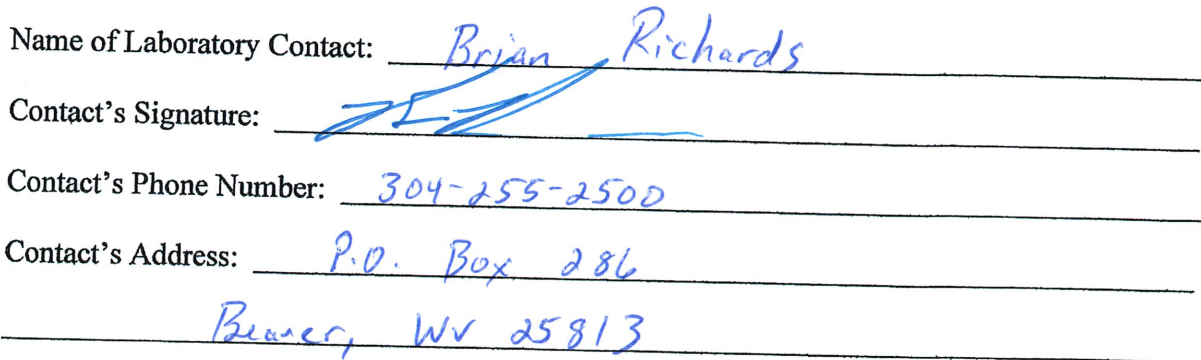 Name of Laboratory Contact: Brian Richards
Contact's Signature:
Contact's Phone Number: 304-255-2500
Contact's Address: P.O. Box 286
Beaver, WV 25813